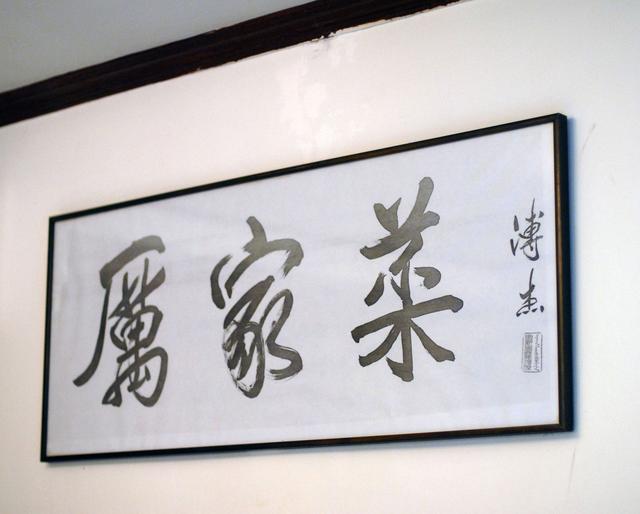 厲家菜
溥杰